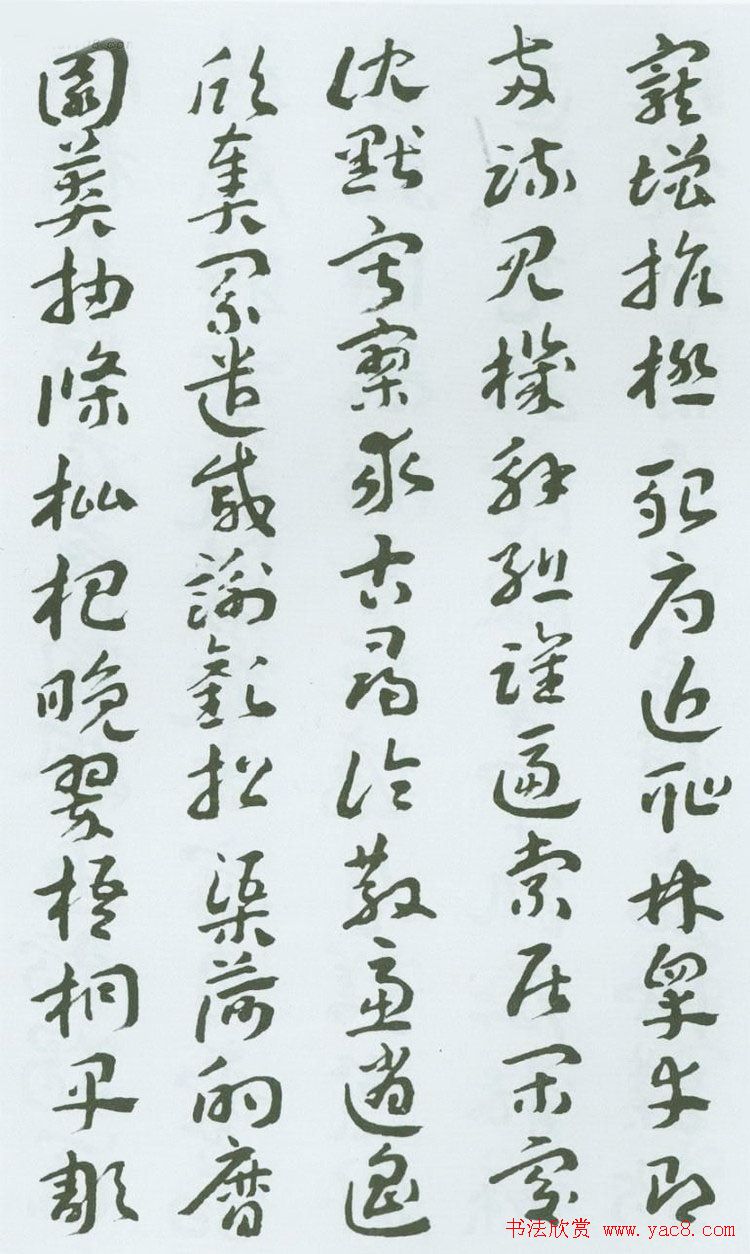 寵增抗極殆辱近耻林皋幸即
兩疏見機解組誰逼索居閑處
沈默寂寥求古尋論散慮逍遙
欣奏累遣慼謝歡招渠荷的歷
園莽抽條枇杷晚翠梧桐早彫
书法欣赏 www.yac8.com